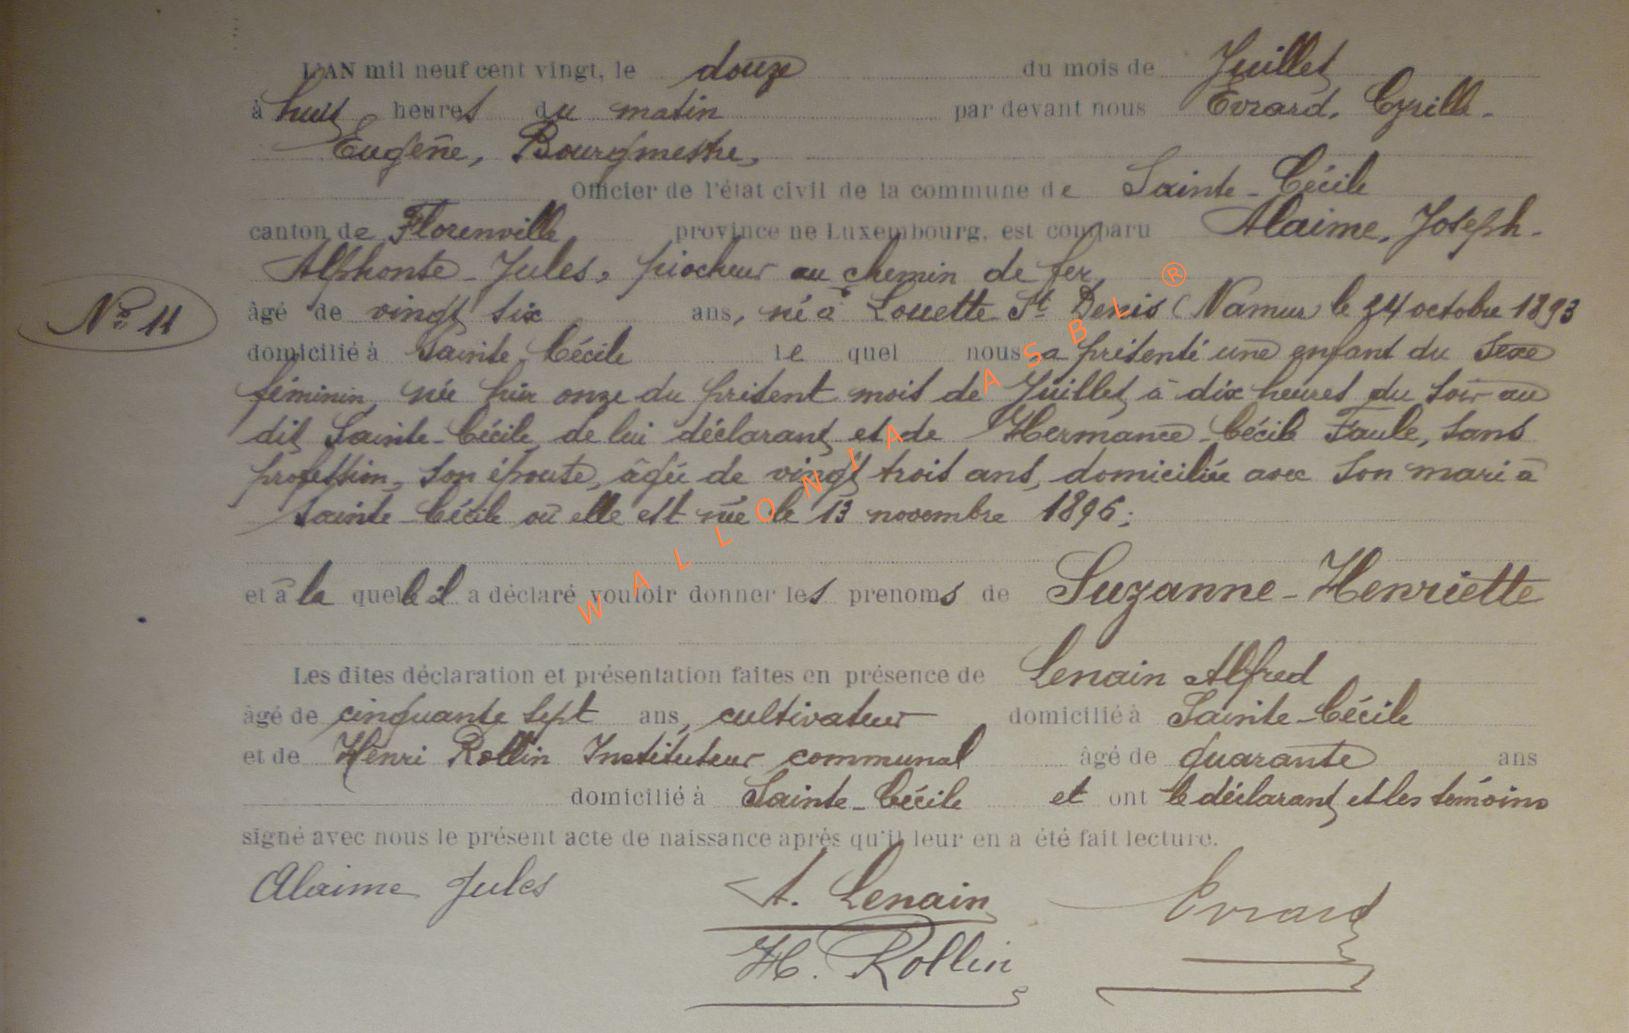 L'AN mil neuf cent vingt, le douze du mois de Juillet
à huit heures du matin par devant nous Evrard, Cyrille-
Eugène, Bourgmestre,
Officier de l'état civil de la commune de Sainte-Cécile
canton de Florenville province de Luxembourg, est comparu Alaime, Joseph-
Alphonse-Jules, piocheur au chemin de fer,
Nº 11
âgé de vingt six ans, né à Louette St Denis (Namur) le 24 octobre 1893
domicilié à Sainte-Cécile le quel nous a présenté une enfant du sexe
féminin, née hier onze du présent mois de Juillet à dix heures du soir au
dit Sainte-Cécile, de lui déclarant et de Hermance-Cécile Faule, sans
profession, son épouse, âgée de vingt trois ans, domiciliée avec son mari à
Sainte-Cécile où elle est née le 13 novembre 1896;
et à la quelle il a déclaré vouloir donner les prenoms de Suzanne-Henriette
Les dites déclaration et présentation faites en présence de Lenain Alfred
âgé de cinquante sept ans, cultivateur domicilié à Sainte-Cécile
et de Henri Rollin Instituteur communal âgé de quarante ans
domicilié à Sainte-Cécile et ont le déclarant et les témoins
signé avec nous le présent acte de naissance après qu'il leur en a été fait lecture.
Alaime Jules A. Lenain Evrard
H. Rollin
WALLONIA ASBL ®